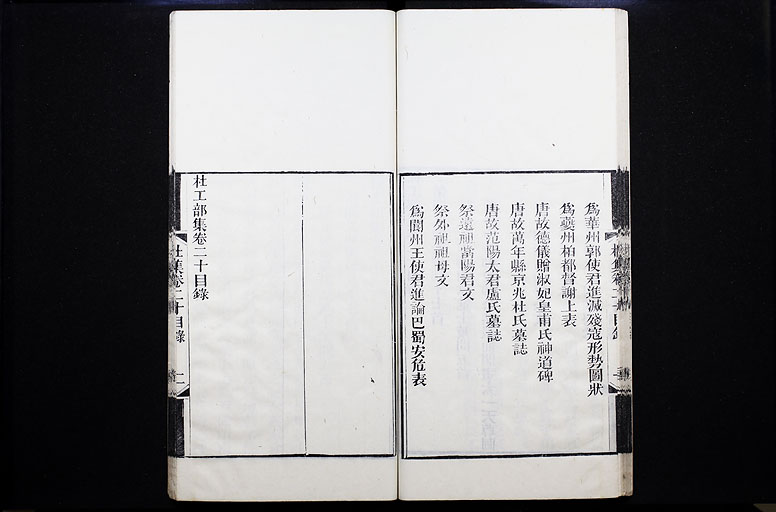 為華州郭使君進滅殘寇形勢圖狀
為夔州柏都督謝上表
唐故德儀贈淑妃皇甫氏神道碑
唐故萬年縣京兆杜氏墓誌
唐故范陽太君盧氏墓誌
祭遠祖當陽君文
祭外祖祖母文
為閬州王使君進論巴蜀安危表
杜工部集卷二十目錄
杜集卷二十目錄
二